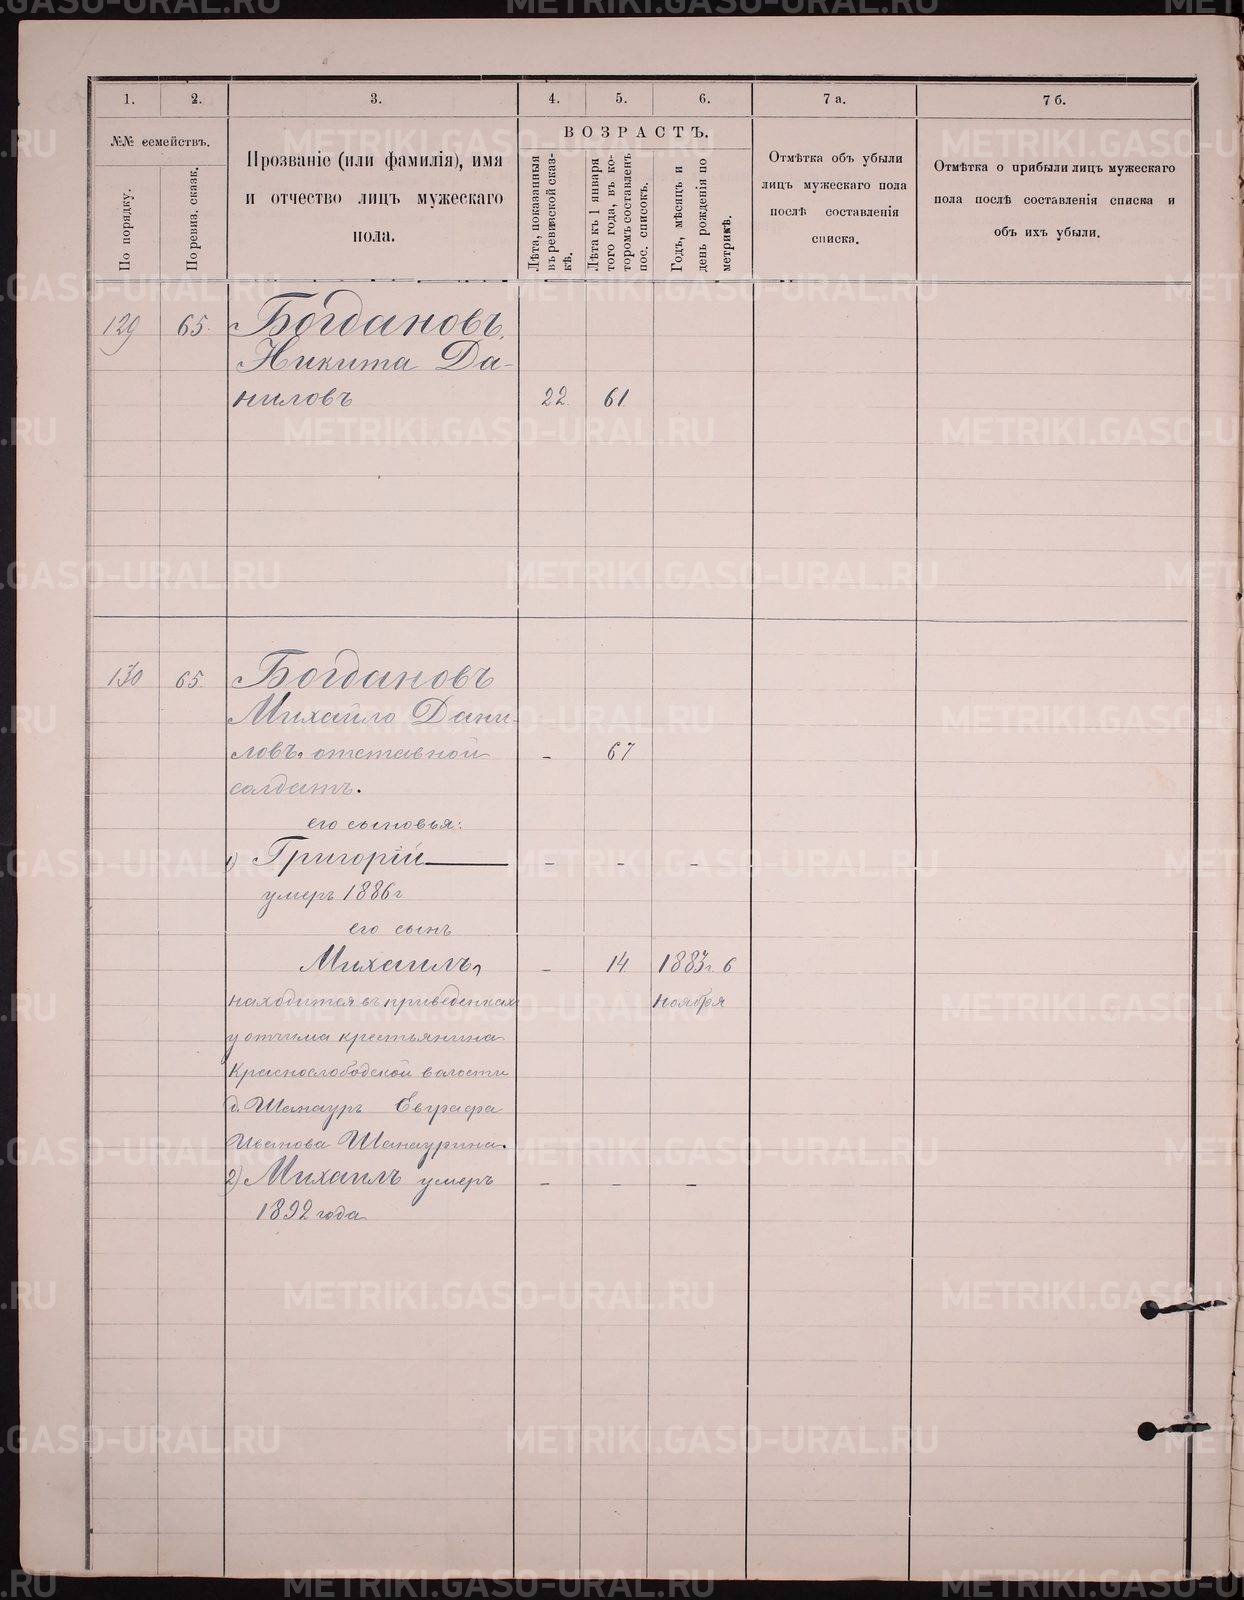 1. 2. 3. 4. 5. 6. 7 а. 7 б.
№№ семействъ.
По порядку.
По ревиз. сказк.
Прозваніе (или фамилія), имя
и отчество лицъ мужескаго
пола.
ВОЗРАСТЪ.
Лѣта, показанныя
въ ревизской сказ-
кѣ.
Лѣта къ 1 января
того года, въ ко-
торомъ составленъ
пос. списокъ.
Годъ, мѣсяцъ и
день рожденія по
метрикѣ.
Отмѣтка объ убыли
лицъ мужескаго пола
послѣ составленія
списка.
Отмѣтка о прибыли лицъ мужескаго
пола послѣ составленія списка и
объ ихъ убыли.
129 65. Богдановъ,
Никита Да-
ниловъ 22. 61.
130 65. Богдановъ
Михайло Дани-
ловъ, отставной - 67
солдатъ.
его сыновья:
1) Григорій - - -
умеръ 1886 г
его сынъ
Михаилъ, - 14 1883 г. 6
находится въ приведенкахъ ноября
у отчима крестьянина
Краснослободской волости
д. Шанауръ Евграфа
Иванова Шанаурина.
2) Михаилъ умеръ - - -
1892 года
METRIKI.GASO-URAL.RU